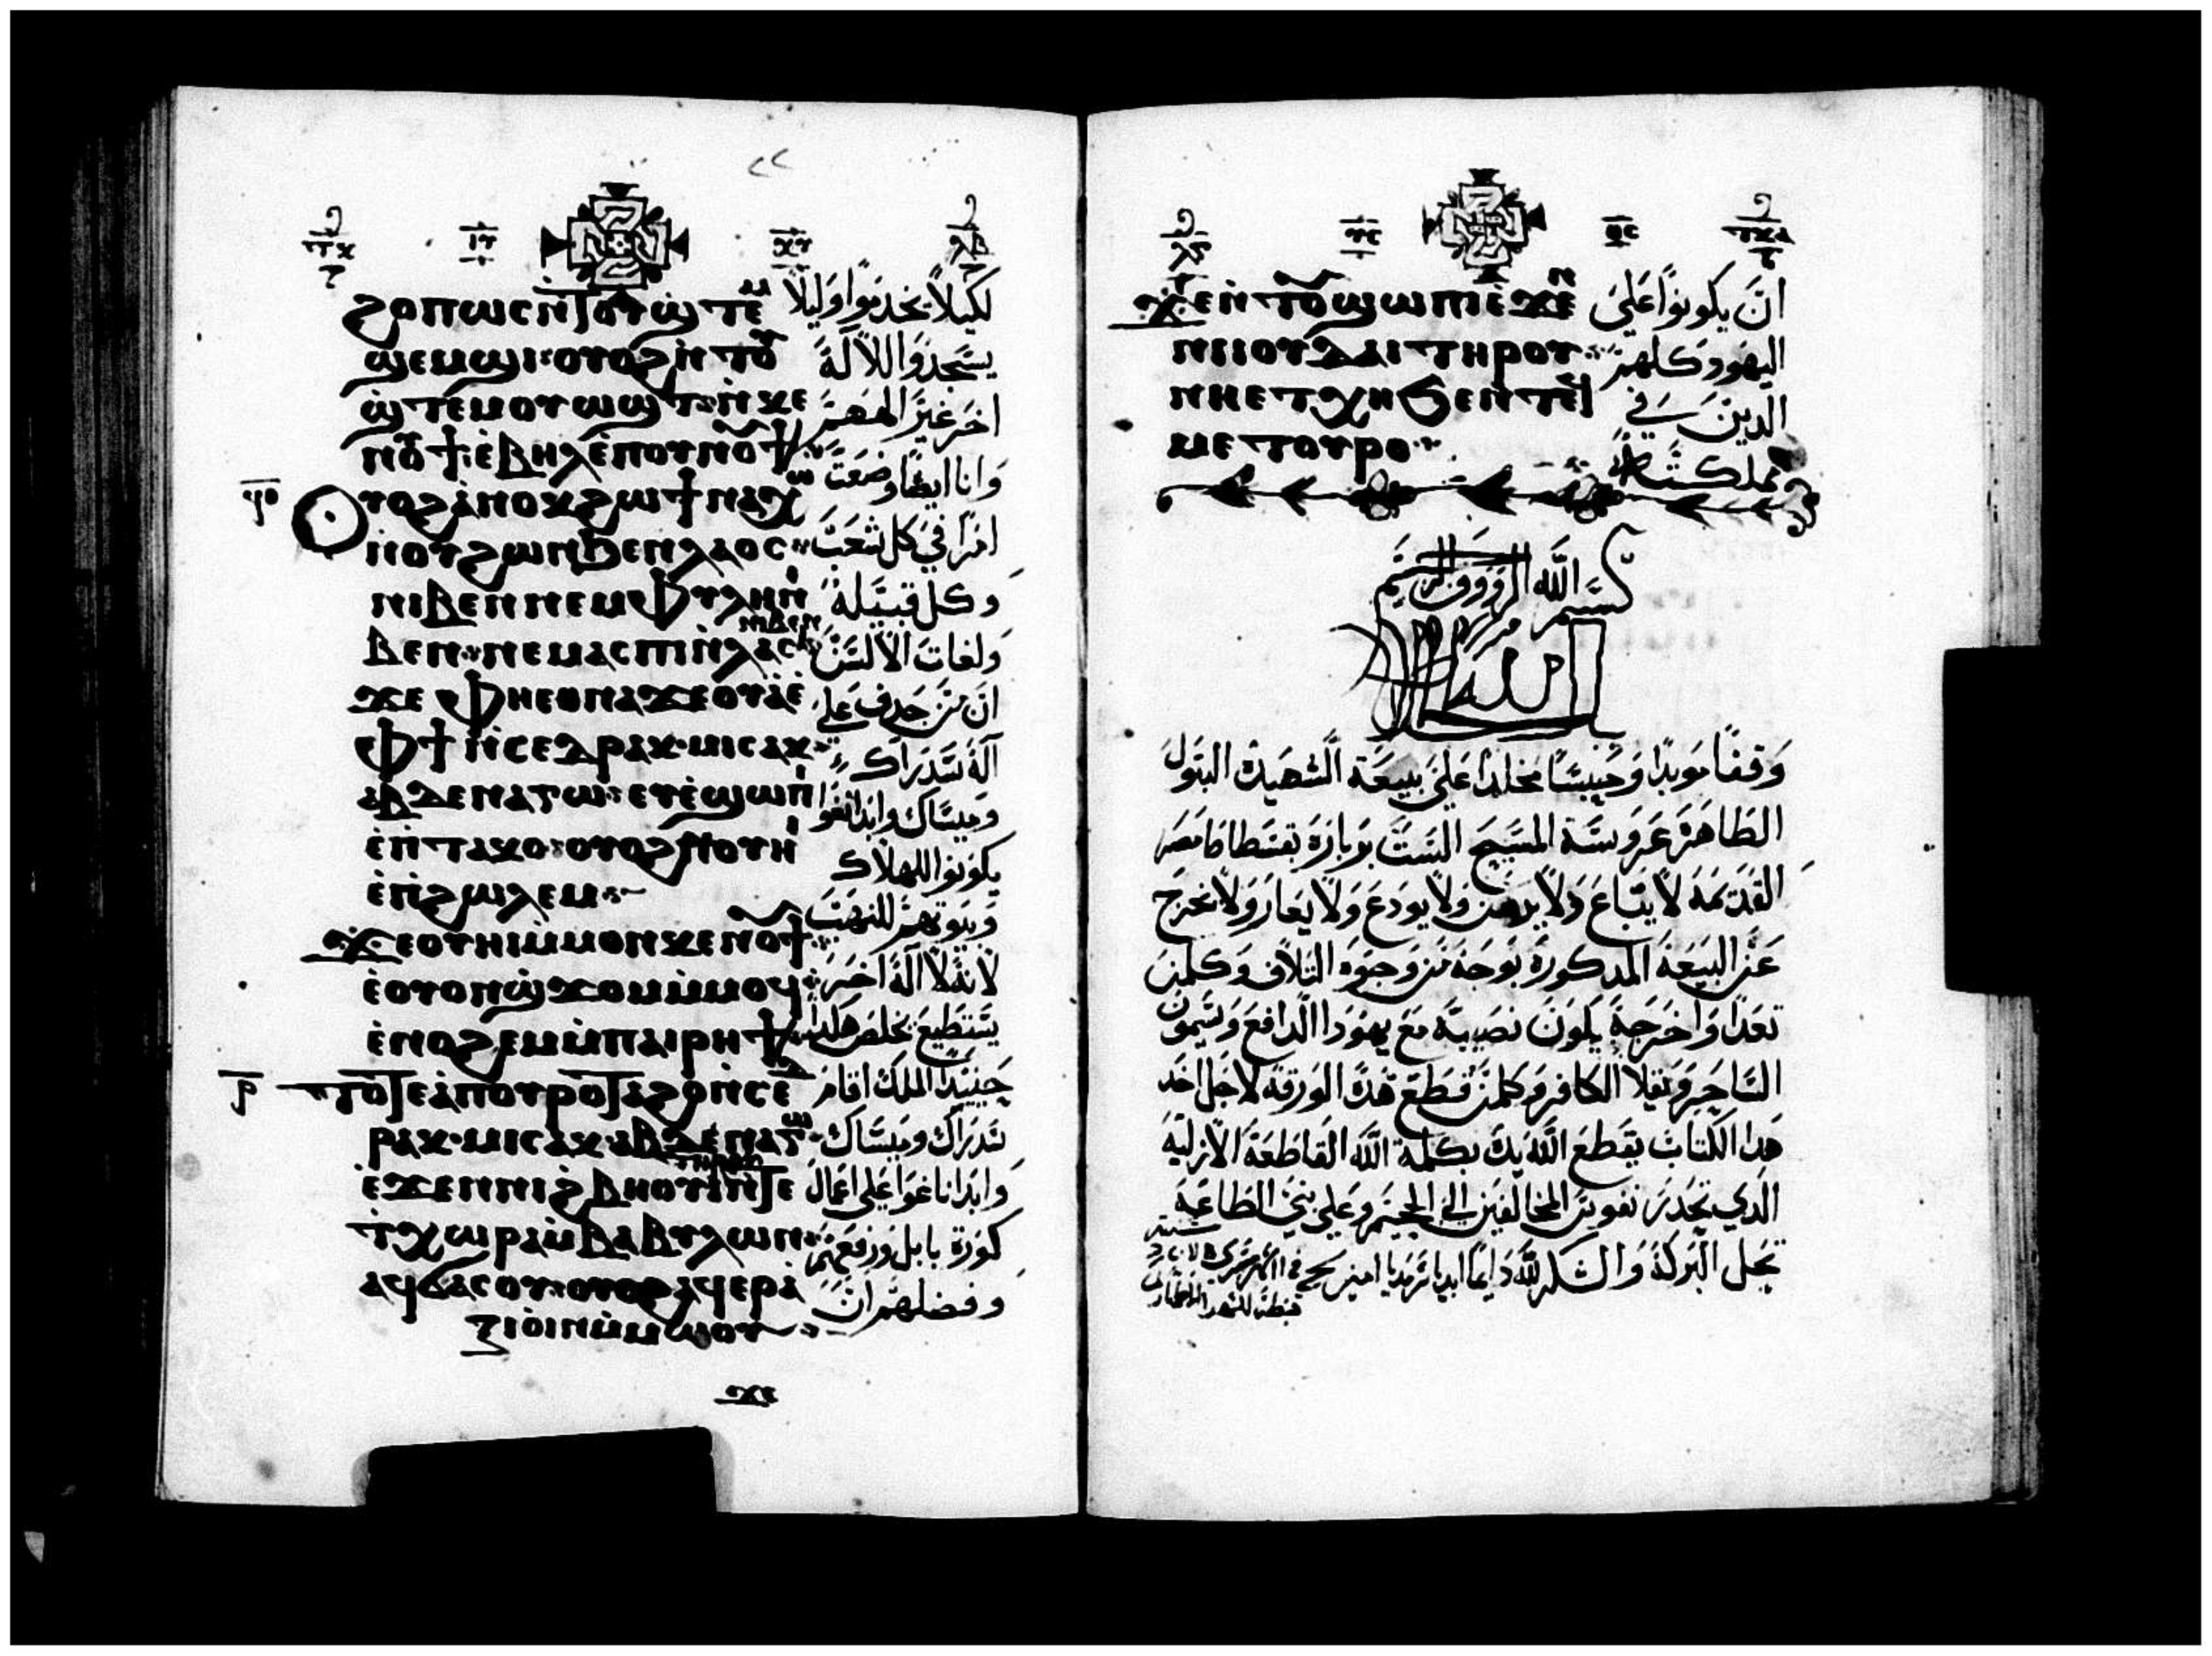 ϩⲟⲡⲱⲥ ⲛ̀ⲧⲟⲩϣ̀ⲧⲉⲙ
ϣⲉⲙϣⲓ ⲟⲩⲟϩ ⲛ̀ⲧⲟⲩ
ϣ̀ⲧⲉⲙⲟⲩⲱϣⲧ ⲛ̀ⲕⲉ
ⲛⲟⲩϯ ⲉ̀ⲃⲏⲗ ⲉ̀ⲡⲟⲩⲛⲟⲩϯ
ϥⲑ
ⲟⲩⲟϩ ⲁ̀ⲛⲟⲕ ϩⲱ ϯⲛⲁⲭⲱ
ⲛ̀ⲟⲩϩⲱⲛ ϧⲉⲛ ⲗⲁⲟⲥ
ⲛⲓⲃⲉⲛ ⲛⲉⲙ ⲫⲩⲗⲏ ⲛⲓ
ⲃⲉⲛ ⲛⲉⲙ ⲁⲥⲡⲓ ⲛ̀ⲗⲁⲥ ⲛⲓⲃⲉⲛ
ϫⲉ ⲫⲏⲉⲑⲛⲁϫⲉⲟⲩⲁ̀ ⲉ̀
ⲫϯ ⲛ̀ⲥⲉⲇⲣⲁⲕ ⲙⲓⲥⲁⲕ
ⲁⲃⲇⲉⲛⲁⲅⲱ ⲉⲩⲉ̀ϣⲱⲡⲓ
ⲉ̀ⲡⲧⲁⲕⲟ ⲟⲩⲟϩ ⲛⲟⲩⲏⲓ
ⲉ̀ⲡ̀ϩⲱⲗⲉⲙ
ϫⲉ ⲟⲩⲏⲓ ⲙ̀ⲙⲟⲛ ⲕⲉⲛⲟⲩϯ
ⲉ̀ⲟⲩⲟⲛ ϣ̀ϫⲟⲙ ⲙ̀ⲙⲟϥ
ⲉ̀ⲛⲟϩⲉⲙ ⲙ̀ⲡⲁⲓⲣⲏϯ
ⲣ
ⲧⲟⲧⲉ ⲁ̀ⲡⲟⲩⲣⲟ ⲧⲁϩⲟ ⲛ̀ⲥⲉⲇ
ⲣⲁⲕ ⲙⲓⲥⲁⲕ ⲁⲃⲇⲉⲛⲁⲅⲱ
ⲉ̀ϫⲉⲛ ⲛⲓϩⲃⲏⲟⲩⲓ̀ ⲛ̀ⲧⲉ
ⲧ̀ⲭⲱⲣⲁ ⲙ̀ⲃⲁⲃⲩⲗⲱⲛ
ⲁϥϭⲁⲥⲟⲩ ⲟⲩⲟϩ ⲁϥⲉⲣⲁ̀
ⲝⲓⲟⲓⲛ ⲙ̀ⲙⲱⲟⲩ
ϫⲉ
لكيلا يخدموا وليلا
يسجدوا لالاه
اخر غير الههم
وانا ايضا وضعت
امرا في كل شعب
وكل قبيله
ولغات الالسن
ان من جدف علي
اله سدراك
وميساك وابدناغوا
يكونوا للهلاك
وبيوتهم للنهب
لانه لا اله اخر
يستطيع يخلص هكدا
حينيد الملك اقام
سدراك وميساك
وابدناغوا علي اعمال
كورة بابل ورفعهم
وفضلهم ان
ϫⲉⲛⲧⲟⲩϣⲱⲡⲓ ⲉ̀ϫⲉⲛ
ⲛⲓⲓⲟⲩⲇⲁⲓ ⲧⲏⲣⲟⲩ
ⲛⲏⲉⲧⲭⲏ ϧⲉⲛ ⲧⲉϥ
ⲙⲉⲧⲟⲩⲣⲟ
ان يكونوا علي
اليهود كلهم
الدين في
مملكته
بسم الله الرووف الرحيم
وقفا موبدا وحبيسا مخلدا علي بيعة الشهيدة البتول
الطاهرة عروسة المسيح الست بربارة بقسطاط مصر
القديمه لا يباع ولا يرهن ولا يودع ولا يعار ولا يخرج
عن البيعة المدكورة بوجه من وجوه التلاف وكلمن
تعدا واخرجه يكون نصيبه مع يهودا الدافع وسيمون
الساحر ودقلا الكافر وكلمن قطع هده الورقه لاجل اخد
هدا الكتاب يقطع الله يده بكلمة الله القاطعة الازليه
الدي تحدر نفوس المخالفين الي الجحيم وعلي بني الطاعة
تحل البركة والشكر لله دايما ابديا سرمديا امين